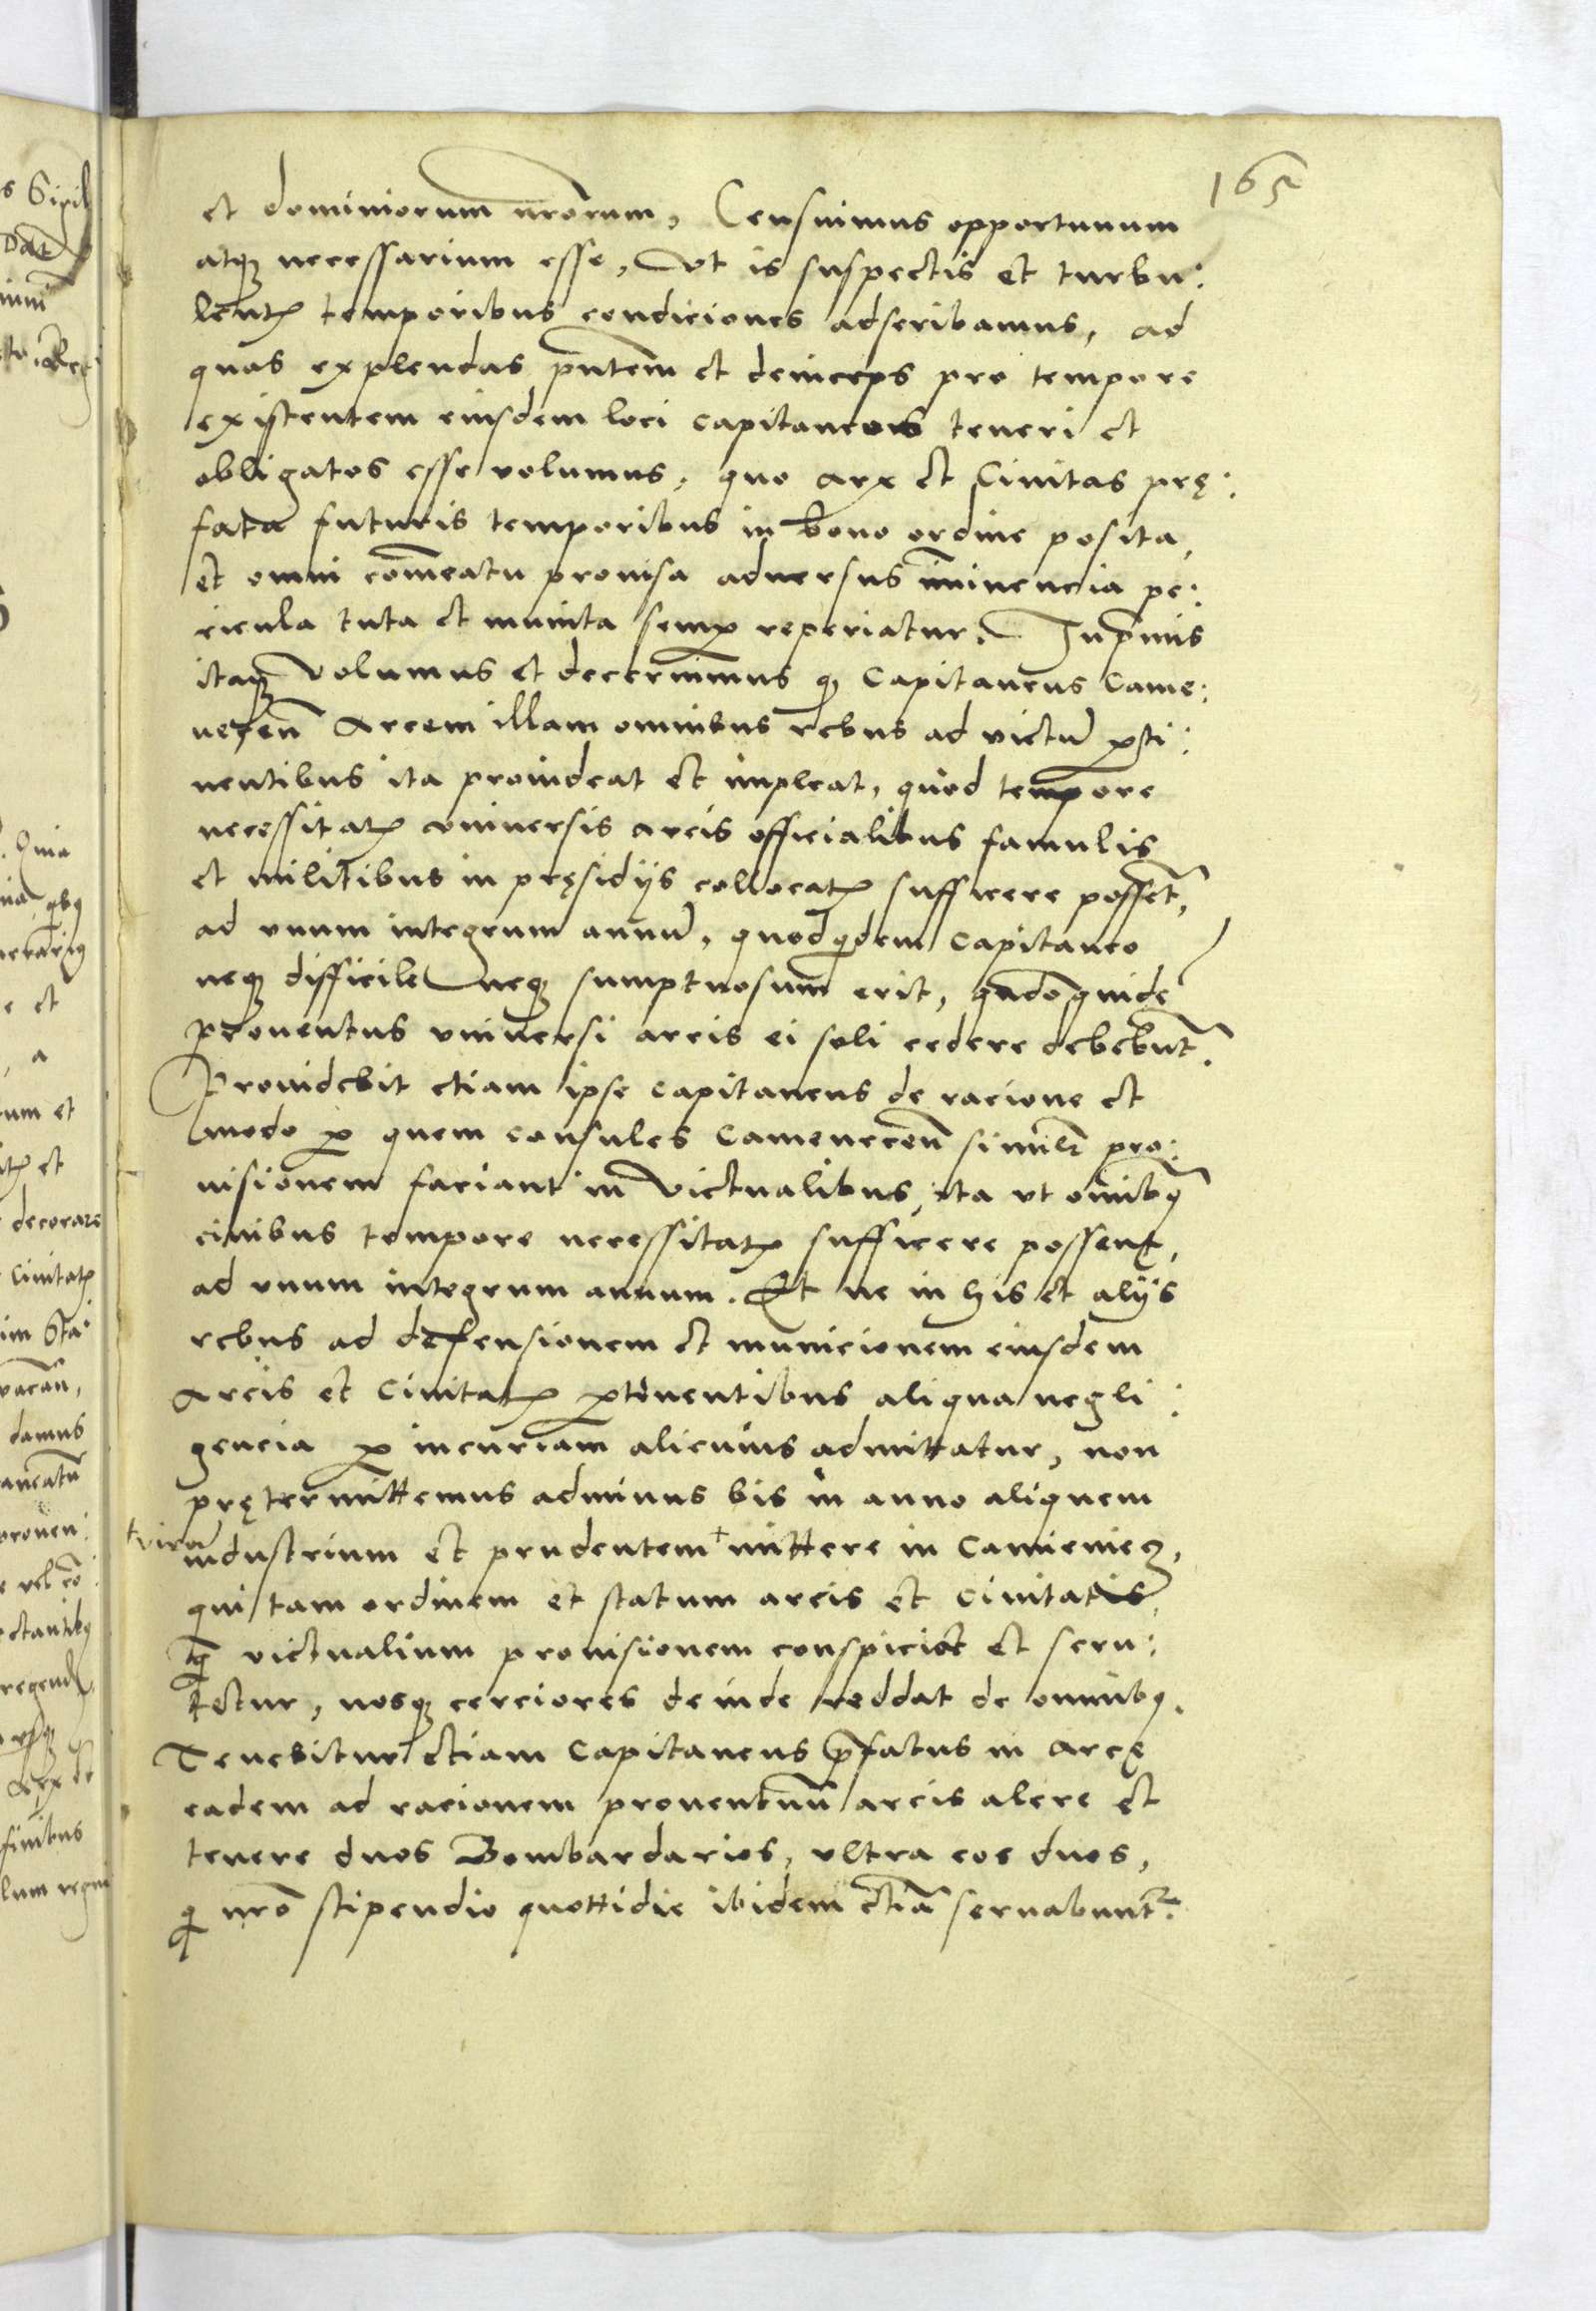 165
et dominiorum nrõrum, Censuimus opportunum
atqȝ necessarium esse, Vt is suspectis et turbu:
lentꝭ temporibus condiciones adscribamus, ad
quas explendas pñtem et deinceps pro tempore
existentem eiusdem loci capitaneos teneri et
obligatos esse volumus, quo arx et Ciuitas prę:
fata futuris temporibus in bono ordine posita,
et omni com̃eatu prouisa aduersus im̃inencia pe:
ricula tuta et munita semꝑ reperiatur. Inp̃mis
itaqȝ Volumus et decernimus qȝ Capitaneus Came:
necen̄ Arcem illam omnibus rebus ad victũ ꝑti:
nentibus ita prouideat et impleat, quod tempore
necessitatꝭ vniuersis arcis officialibus famulis
et militibus in pręsidijs collocatꝭ sufficere possct̃,
ad vnum integrum annũ, quodq̃dem Capitaneo
neqȝ difficile neqȝ sumptuosum erit, qñdoquidẽ
prouentus vniuersi arcis ei soli cedere debebũt.
Prouidebit etiam ipse capitaneus de racione et
modo ꝑ quem consules Camenecen̄ similẽ pro:
uisionem faciant in Victualibus, ita vt omĩbꝰ
ciuibus tempore necessitatꝭ sufficere possent,
ad vnum integrum annum. Et ne in his et alijs
rebus ad defensionem et municionem eiusdem
Arcis et Ciuitatꝭ ꝑtinentibus aliqua negli:
gencia ꝑ incuriam alicuius admittatur, non
prętermittemus adminus bis in anno aliquem
+virũ
industrium et prudentem + mittere in Camieniecz,
qui tam ordinem et statum arcis et Ciuitatis,
q̃ victualium prouisionem conspiciat et scru:
tetur, nosqȝ cerciores deinde reddat de omnibꝰ.
Tenebitur etiam Capitaneus p̃fatus in arcę
eadem ad racionem prouentuũ arcis alere et
tenere duos Bombardarios, vltra eos duos,
qi nrõ stipendio quottidie ibidem etiã seruabunt̃: